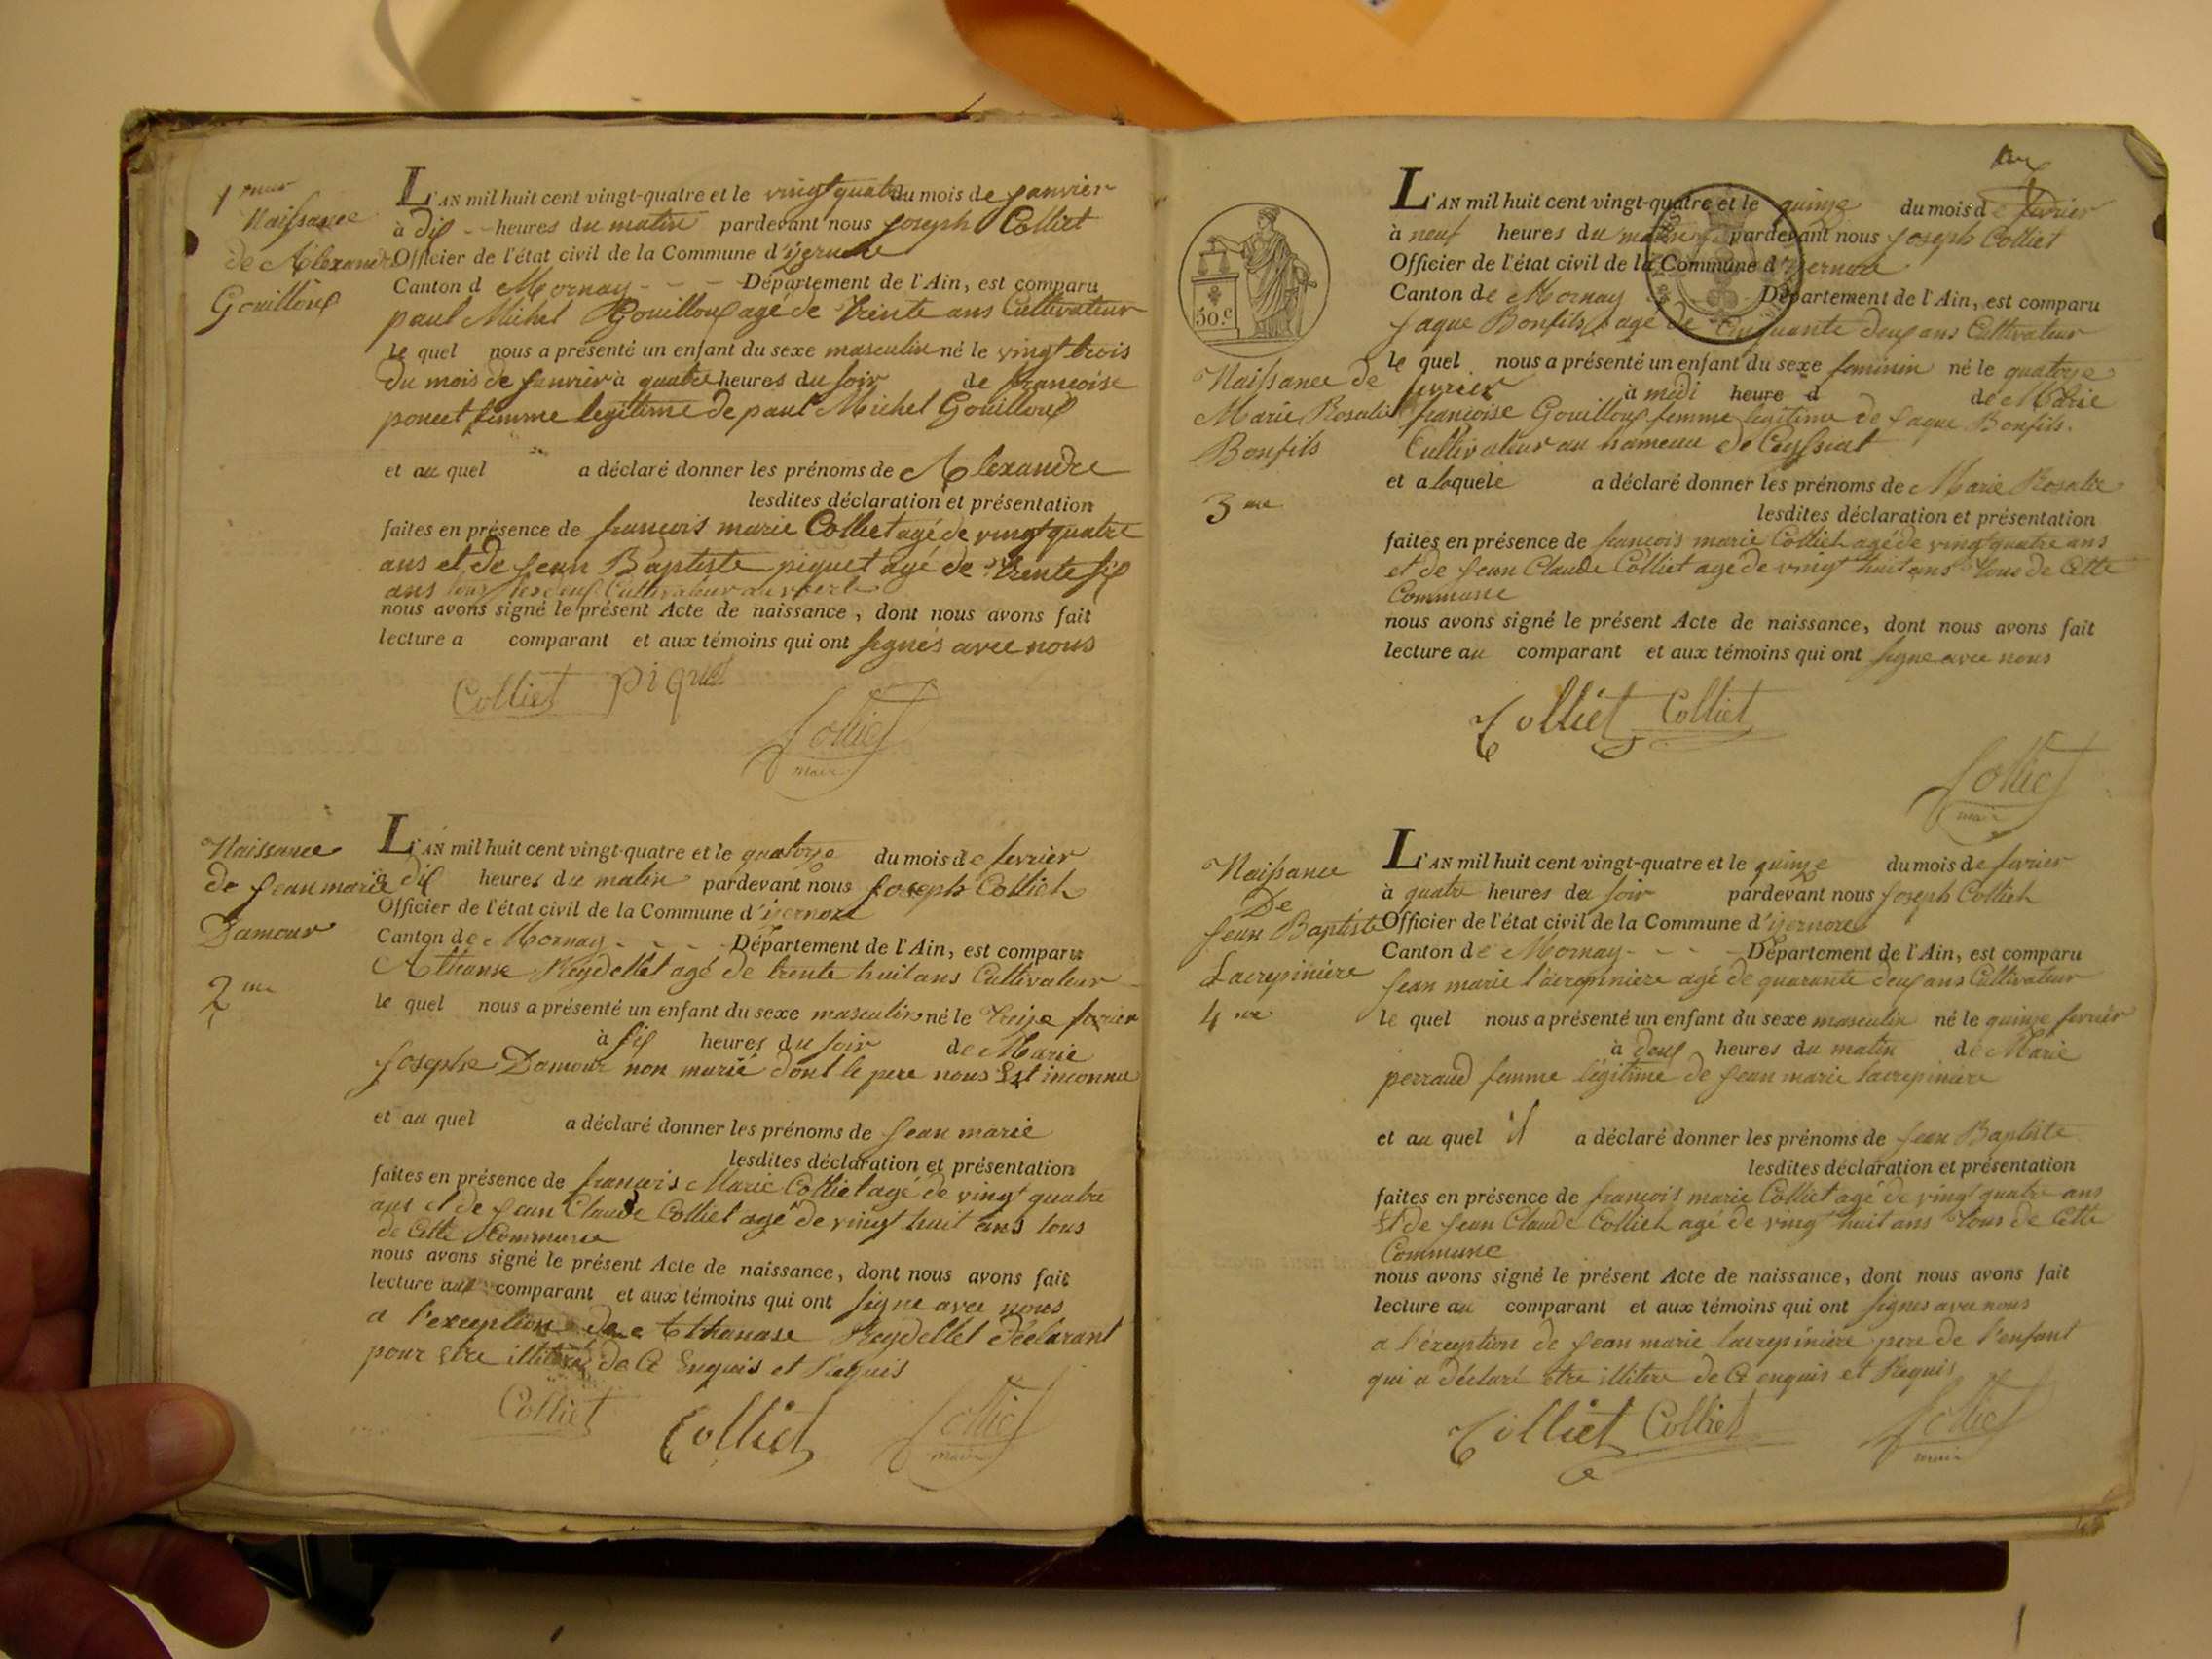 1
Naissance
de Alexandre
Gouilloux
L'AN mil huit cent vingt-quatre et le vingt quatre du mois de janvier
à dix heures du matin pardevant nous Joseph Colliet
Officier de l'état civil de la Commune d'yzernore
Canton d Mornay - - - Département de l'Ain, est comparu
paul Michel Gouilloux agé de trente ans Cultivateur
le quel nous a présenté un enfant du sexe masculin né le vingt trois
du mois de janvier à quatre heures du soir de françoise
poncet femme legitime de paul Michel Gouilloux
et au quel a déclaré donner les prénoms de Alexandre
lesdites déclaration et présentation
faites en présence de francois marie Colliet agé de vingt quatre
ans et de jean Baptiste piquet agé de trente six
ans tous les deux Cultivateur
nous avons signé le présent Acte de naissance, dont nous avons fait
lecture a comparant et aux témoins qui ont signés avec nous
Colliet piquet
Colliet
maire
Naissance
de jean marie
Damour
2me
L'AN mil huit cent vingt-quatre et le quatorze du mois de fevrier
à dix heures du matin pardevant nous Joseph Colliet
Officier de l'état civil de la Commune d'izernore
Canton de Mornay - - - Département de l'Ain, est comparu
Athanse Reydellet agé de trente huit ans Cultivateur
le quel nous a présenté un enfant du sexe masculin né le treize fevrier
à six heures du soir de Marie
Josephe Damour non marié dont le pere nous Est inconnu
et au quel a déclaré donner les prénoms de jean marie
lesdites déclaration et présentation
faites en présence de francois Marie Colliet agé de vingt quatre
ans et de jean Claude Colliet agé de vingt huit ans tous
de Cette Commune
nous avons signé le présent Acte de naissance, dont nous avons fait
lecture aux comparant et aux témoins qui ont signe avec nous
a l'exception de Athanase Reydellet déclarant
pour Etre illitere de Ce Enquis et Requis
Colliet Colliet Colliet
maire
50.c
Naissance de
Marie Rosalie
Bonfils
3me
L'AN mil huit cent vingt-quatre et le quinze du mois de fevrier
à neuf heures du matin pardevant nous Joseph Colliet
Officier de l'état civil de la Commune d'yzernore
Canton de Mornay Département de l'Ain, est comparu
jaque Bonfils agé de Cinquante deux ans Cultivateur
le quel nous a présenté un enfant du sexe feminin né le quatorze
fevrier à midi heure d de Marie
françoise Gouilloux femme legitime de jaque Bonfils.
Cultivateur au hameau de Ceyssiat
et a laquele a déclaré donner les prénoms de Marie Rosalie
lesdites déclaration et présentation
faites en présence de francois marie Colliet agé de vingt quatre ans
et de jean Claude Colliet agé de vingt huit ans tous de Cette
Commune
nous avons signé le présent Acte de naissance, dont nous avons fait
lecture au comparant et aux témoins qui ont signe avec nous
Colliet Colliet
Colliet
maire
Naissance
De
jean Baptiste
Lacrepiniere
4me
L'AN mil huit cent vingt-quatre et le quinze du mois de fevrier
à quatre heures du soir pardevant nous Joseph Colliet
Officier de l'état civil de la Commune d'yzernore
Canton de Mornay - - - Département de l'Ain, est comparu
jean marie lacrepiniere agé de quarante deux ans Cultivateur
le quel nous a présenté un enfant du sexe masculin né le quinze fevrier
à deux heures du matin de Marie
perraud femme légitime de jean marie lacrepiniere
et au quel il a déclaré donner les prénoms de jean Baptiste
lesdites déclaration et présentation
faites en présence de françois marie Colliet agé de vingt quatre ans
Et de jean Claude Colliet agé de vingt huit ans tous de Cette
Commune
nous avons signé le présent Acte de naissance, dont nous avons fait
lecture au comparant et aux témoins qui ont signes avec nous
a l'éxception de jean marie lacrepiniere pere de l'enfant
qui a déclaré etre illitere de Ce enquis et Requis
Colliet Colliet Colliet
maire